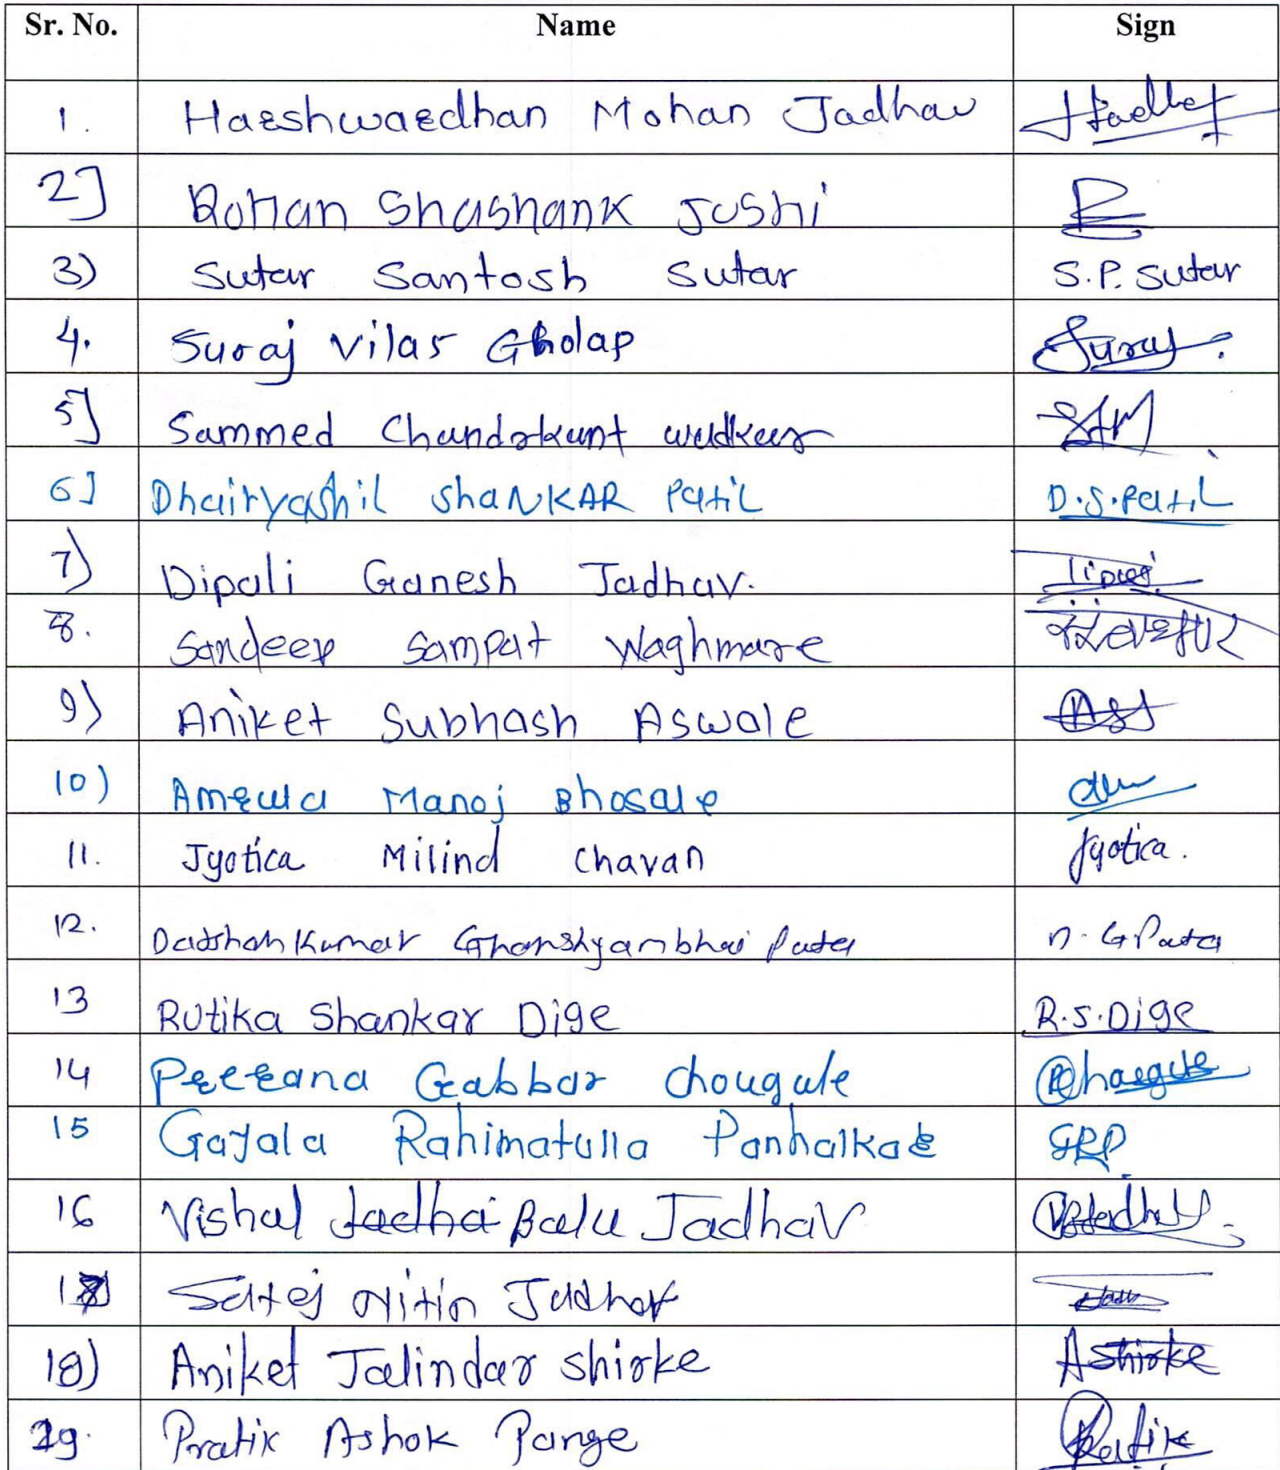 Sr. No. Name Sign
1. Harshwardhan Mohan Jadhav
2] Rohan Shashank Joshi
3) Sutar Santosh Sutar S.P. Sutar
4. Suraj Vilas Gholap Suraj
5] Sammed Chandrakant Wadkar
6] Dhairyashil ShaNKAR Patil D.S.Patil
7) Dipali Ganesh Jadhav.
8. Sandeep Sampat Waghmare
9) Aniket Subhash Aswale
10) Manoj Bhosale
11. Jyotica Milind Chavan Jyotica.
12. Darshankumar Ghanshyambhai Patel D.G Patel
13 Rutika Shankar Dige R.S.Dige
14 Prerana Gabbar Chougule
15 Gajala Rahimatulla Panhalkar GRP
16 Vishal Jadha Balu Jadhav
17 Satej Nitin Jadhav
18) Aniket Jalindar Shirke AShirke
19. Pratik Ashok Pange Pratik